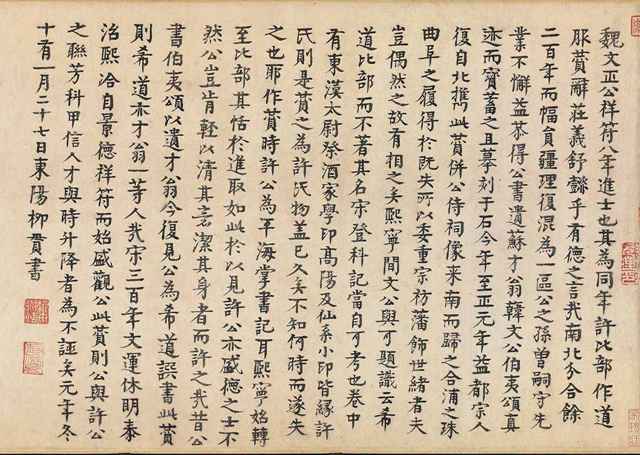 魏文正公祥符八年進士也其為同年許比部作道
服贊辭莊義舒繇乎有德之言哉南北分合餘
二百年而幅員疆理復混為一區公之孫曾嗣守先
業不懈益恭得公書遺蘇才翁韓文公伯夷頌真
迹而寶蓄之且摹刻于石今年至正元年益都宗人
復自北攜此贊併公侍祠像来南而歸之合浦之珠
曲阜之履得於既失所以委重宗祊藩飾世緒者夫
豈偶然之故有相之矣熙寧間文公與可題識云希
道比部而不著其名宋登科記當自可考也卷中
有東漢太尉祭酒家學印高陽及仙系小印皆縁許
氏則是贊之為許氏物蓋已久矣不知何時而遂失
之也耶作贊時許公為平海掌書記耳熙寧始轉
至比部其恬於進取如此於以見許公亦盛德之士不
然公豈肯輕以清其意潔其身者而許之哉昔公
書伯夷頌以遺才翁今復見公為希道譔書此贊
則希道亦才翁一等人哉宋三百年文運休明泰
治熙洽自景德祥符而始盛觀公此贊則公與許公
之聯芳科甲信人才與時升降者為不誣矣元年冬
十有一月二十七日東陽柳貫書